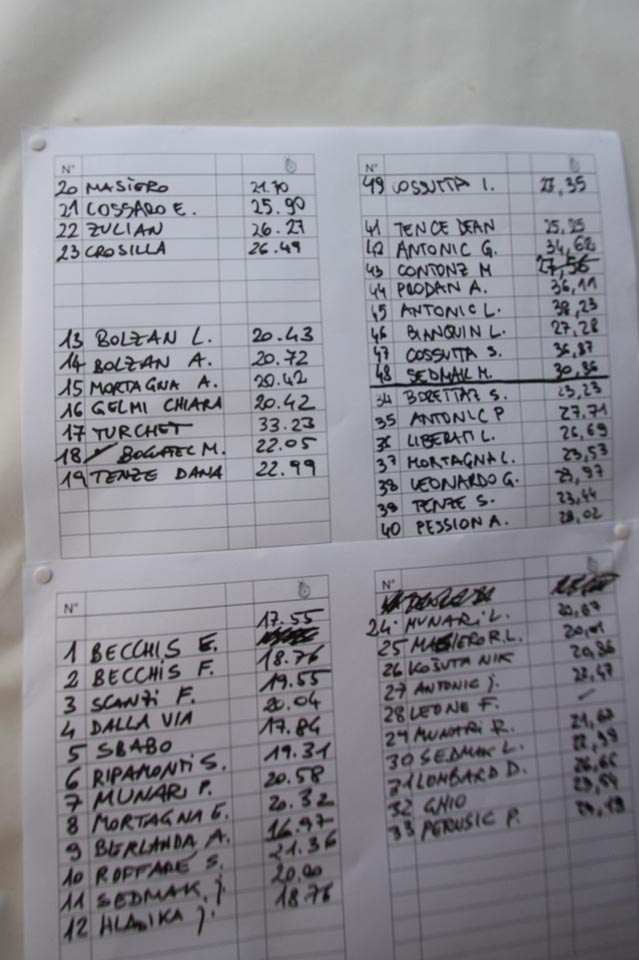 N°
20 MASIERO 21.70
21 COSSARO E. 25.90
22 ZULIAN 26.27
23 CROSILLA 26.49
13 BOLZAN L. 20.43
14 BOLZAN A. 20.72
15 MORTAGNA A. 20.42
16 GELMI CHIARA 20.42
17 TURCHET 33.23
18 BOGATEC M. 22.05
19 TENZE DANA 22.99
N°
49 COSSUTTA I. 35
41 TENCE DEAN 25,25
42 ANTONIC G. 34,62
43 CONTONZ M 27,56
44 PRODAN A. 36,11
45 ANTONIC L. 38,23
46 BIANQUIN L. 27,28
47 COSSUTTA S. 36,87
48 SEDMAK M. 30,36
34 BORETTAZ S. 23,23
35 ANTONIC P 27,71
36 LIBERATI L. 26,69
37 MORTAGNA L. 23,53
38 LEONARDO G. 23,97
39 TENZE S. 23,44
40 PESSION A. 28,02
N°
1 BECCHIS E. 17.55
2 BECCHIS F. 18.76
3 SCANZI F. 19.55
4 DALLA VIA 20.04
5 SBABO 17.84
6 RIPAMONTI S. 19.31
7 MUNARI P. 20.58
8 MORTAGNA E. 20.32
9 BERLANDA A. 16.97
10 ROFFARE S. 21.36
11 SEDMAK j. 20.00
12 HLADIKA j. 18.76
N°
24 MUNARI L. 20,67
25 MASIERO R.L. 20,01
26 KOŠUTA NIK 20,86
27 ANTONIC j. 22,47
28 LEONE F. -
29 MUNARI R. 21,67
30 SEDMAK L. 22,99
31 LOMBARD D. 26,66
32 GHIO
33 PERUSIC P.